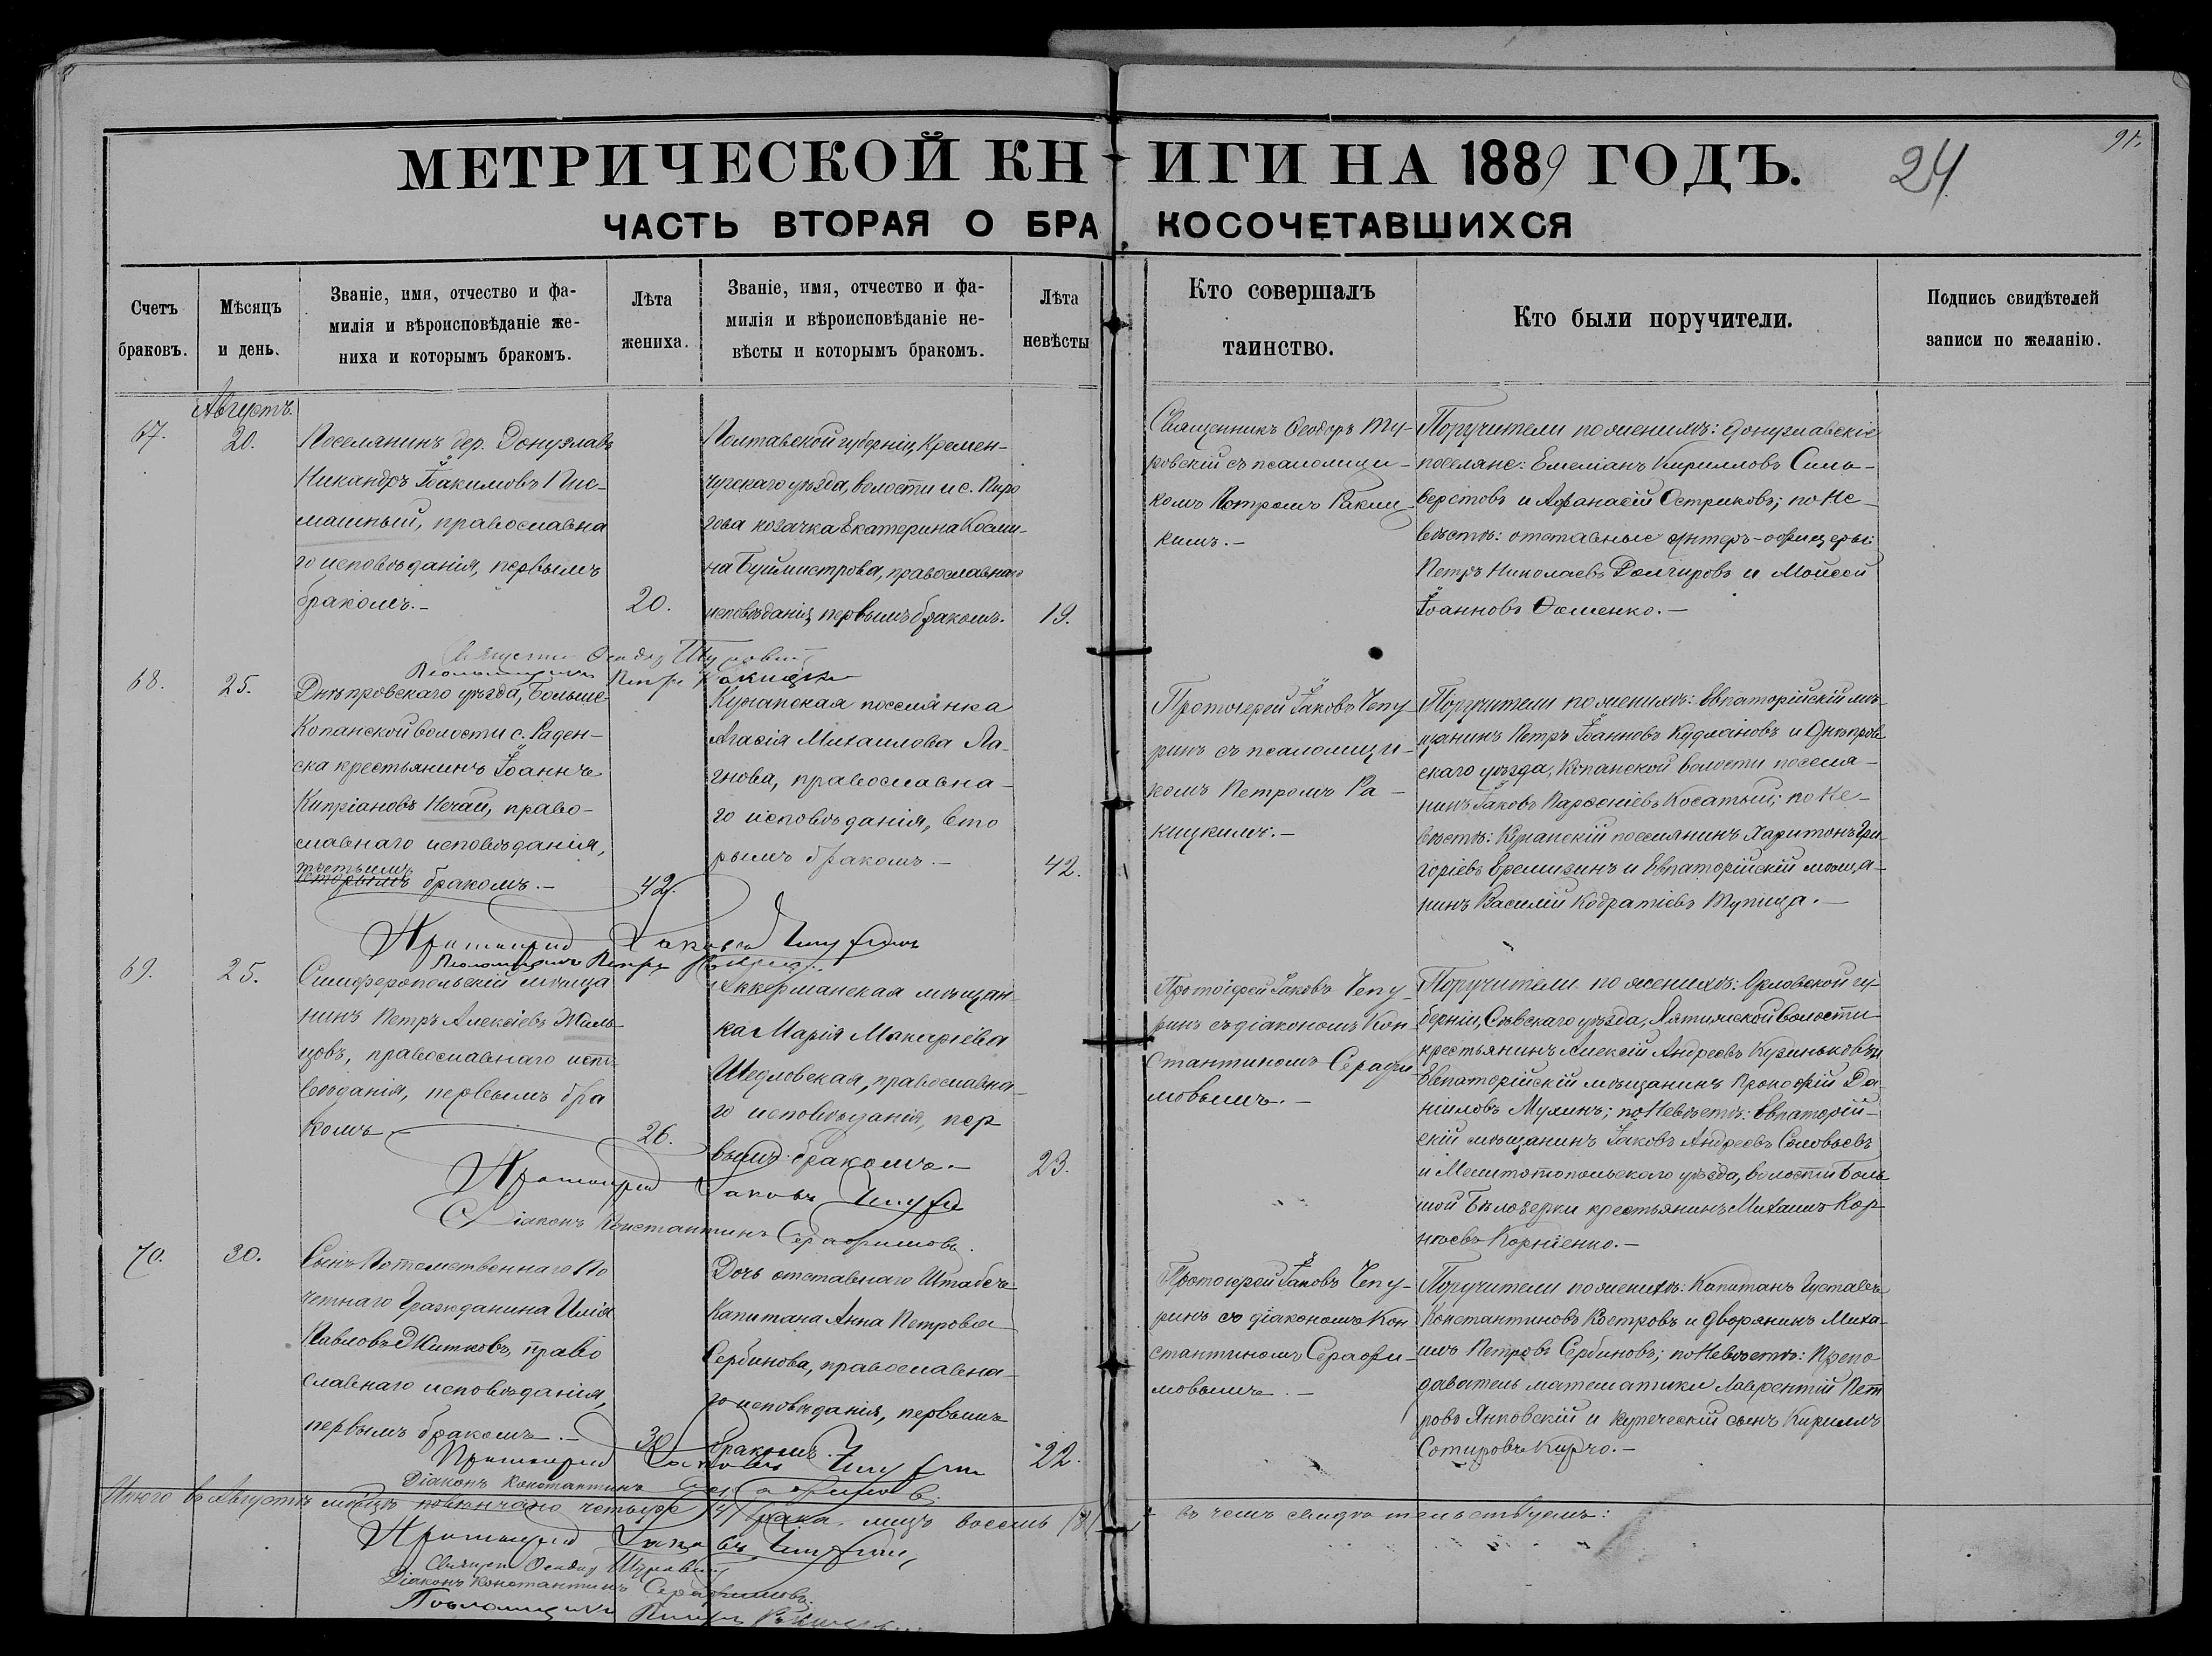 91.
МЕТРИЧЕСКОЙ КНИГИ НА 1889 ГОДЪ.
24
ЧАСТЬ ВТОРАЯ О БРАКОСОЧЕТАВШИХСЯ
Счетъ браковъ.
Мѣсяцъ и день.
Званіе, имя, отчество и фа-
милія и вѣроисповѣданіе же-
ниха и которымъ бракомъ.
Лѣта
жениха.
Званіе, имя, отчество и фа-
милія и вѣроисповѣданіе не-
вѣсты и которымъ бракомъ.
Лѣта
невѣсты
Кто совершалъ
таинство.
Кто были поручители.
Подпись свидѣтелей
записи по желанію.
Августъ.
67.
20.
Поселянинъ дер. Донузлавъ
Никандръ Іоакимовъ Пис-
менный, православна
го исповѣданія, первымъ
бракомъ.-
20.
Полтавской губерніи, Кремен-
чугскаго уѣзда, волости и с. Пиро
гова козачка Екатерина Косми-
на Буймистрова, православнаго
исповѣданія, первымъ бракомъ.
19.
Священникъ Ѳеодоръ Ту-
ровскій съ псаломщи-
комъ Петромъ Ракиц-
кимъ.-
Поручители по женихѣ: Донузлавскіе
поселяне: Емеліанъ Кирилловъ Силь-
верстовъ и Афанасій Остриковъ; по не-
вѣстѣ: отставные унтеръ-офицеры:
Петръ Николаевъ Долгировъ и Моисей
Іоанновъ Ѳоменко.-
Псаломщикъ Петръ Ракицкій
68.
25.
Днѣпровскаго уѣзда, Больше-
Копанской волости с. Раден-
ска крестьянинъ Іоаннъ
Кипріановъ Нечай, право-
славнаго исповѣданія,
третьимъ
вторымъ бракомъ.-
42.
поселянка
Агасія Михаилова Ла-
гнова, православна-
го исповѣданія, вто
рымъ бракомъ.-
42.
Протоіерей Іаковъ Чепу-
ринъ съ псаломщи-
комъ Петромъ Ра-
кицкимъ.-
Поручители по женихѣ: Евпаторійскій мѣ-
щанинъ Петръ Іоанновъ и Днѣпров-
скаго уѣзда, Копанской волости поселя-
нинъ Іаковъ Парѳеніевъ Косатый; по не-
вѣстѣ: поселянинъ Харитонъ Гри-
горіевъ Еремизинъ и Евпаторійскій мѣща-
нинъ Василій Кодратіевъ Тупица.-
Протоіерей Іаковъ Чепуринъ
Псаломщикъ Петръ Ракицкій
69.
25.
Симферопольскій мѣща
нинъ Петръ Алексіевъ Жиль-
цовъ, православнаго испо-
вѣданія, первымъ бра
комъ.-
26.
Аккерманская мѣщан-
ка Марія Макаріева
Шедловская, православна-
го исповѣданія, пер
вымъ бракомъ.-
23.
Протоіерей Іаковъ Чепу-
ринъ съ діакономъ Кон-
стантиномъ Серафи-
мовымъ.-
Поручители по женихѣ: Орловской гу-
берніи, Сѣвскаго уѣзда, волости
крестьянинъ Алексій Андреевъ Кузиньковъ и
Евпаторійскій мѣщанинъ Прокофій Да-
ніиловъ Мухинъ; по невѣстѣ: Евпаторій-
скій мѣщанинъ Іаковъ Андреевъ Соловьевъ
и Мелитопольскаго уѣзда, волости Боль
шой Бѣлозерки крестьянинъ Михаилъ Кор
нѣевъ Корніенко.-
Протоіерей Іаковъ Чепуринъ
Діаконъ Константинъ Серафимовъ.
70.
30.
Сынъ Потомственнаго По
четнаго Гражданина Илія
Павловъ Житковъ, право
славнаго исповѣданія,
первымъ бракомъ.-
30
Дочь отставнаго Штабсъ-
Капитана Анна Петровa
Сербинова, православна-
го исповѣданія, первымъ
бракомъ.
22.
Протоіерей Іаковъ Чепу-
ринъ съ діакономъ Кон
стантиномъ Серафи-
мовымъ.-
Поручители по женихѣ: Капитанъ Густавъ
Константиновъ Костровъ и дворянинъ Миха-
илъ Петровъ Сербиновъ; по невѣстѣ: Препо
даватель математики Лаврентій Пет
ровъ Янковскій и купеческій сынъ Кириллъ
Сотировъ Кирчо.-
Протоіерей Іаковъ Чепуринъ
Діаконъ Константинъ Серафимовъ.
Итого въ Августѣ мѣсяцѣ повѣнчано четыре /4/ брака, лицъ восемь /8/ въ чемъ свидѣтельствуемъ:
Протоіерей Іаковъ Чепуринъ
Священ Ѳеодоръ Туровскій
Діаконъ Константинъ Серафимовъ.
Псаломщикъ Петръ Ракицкій